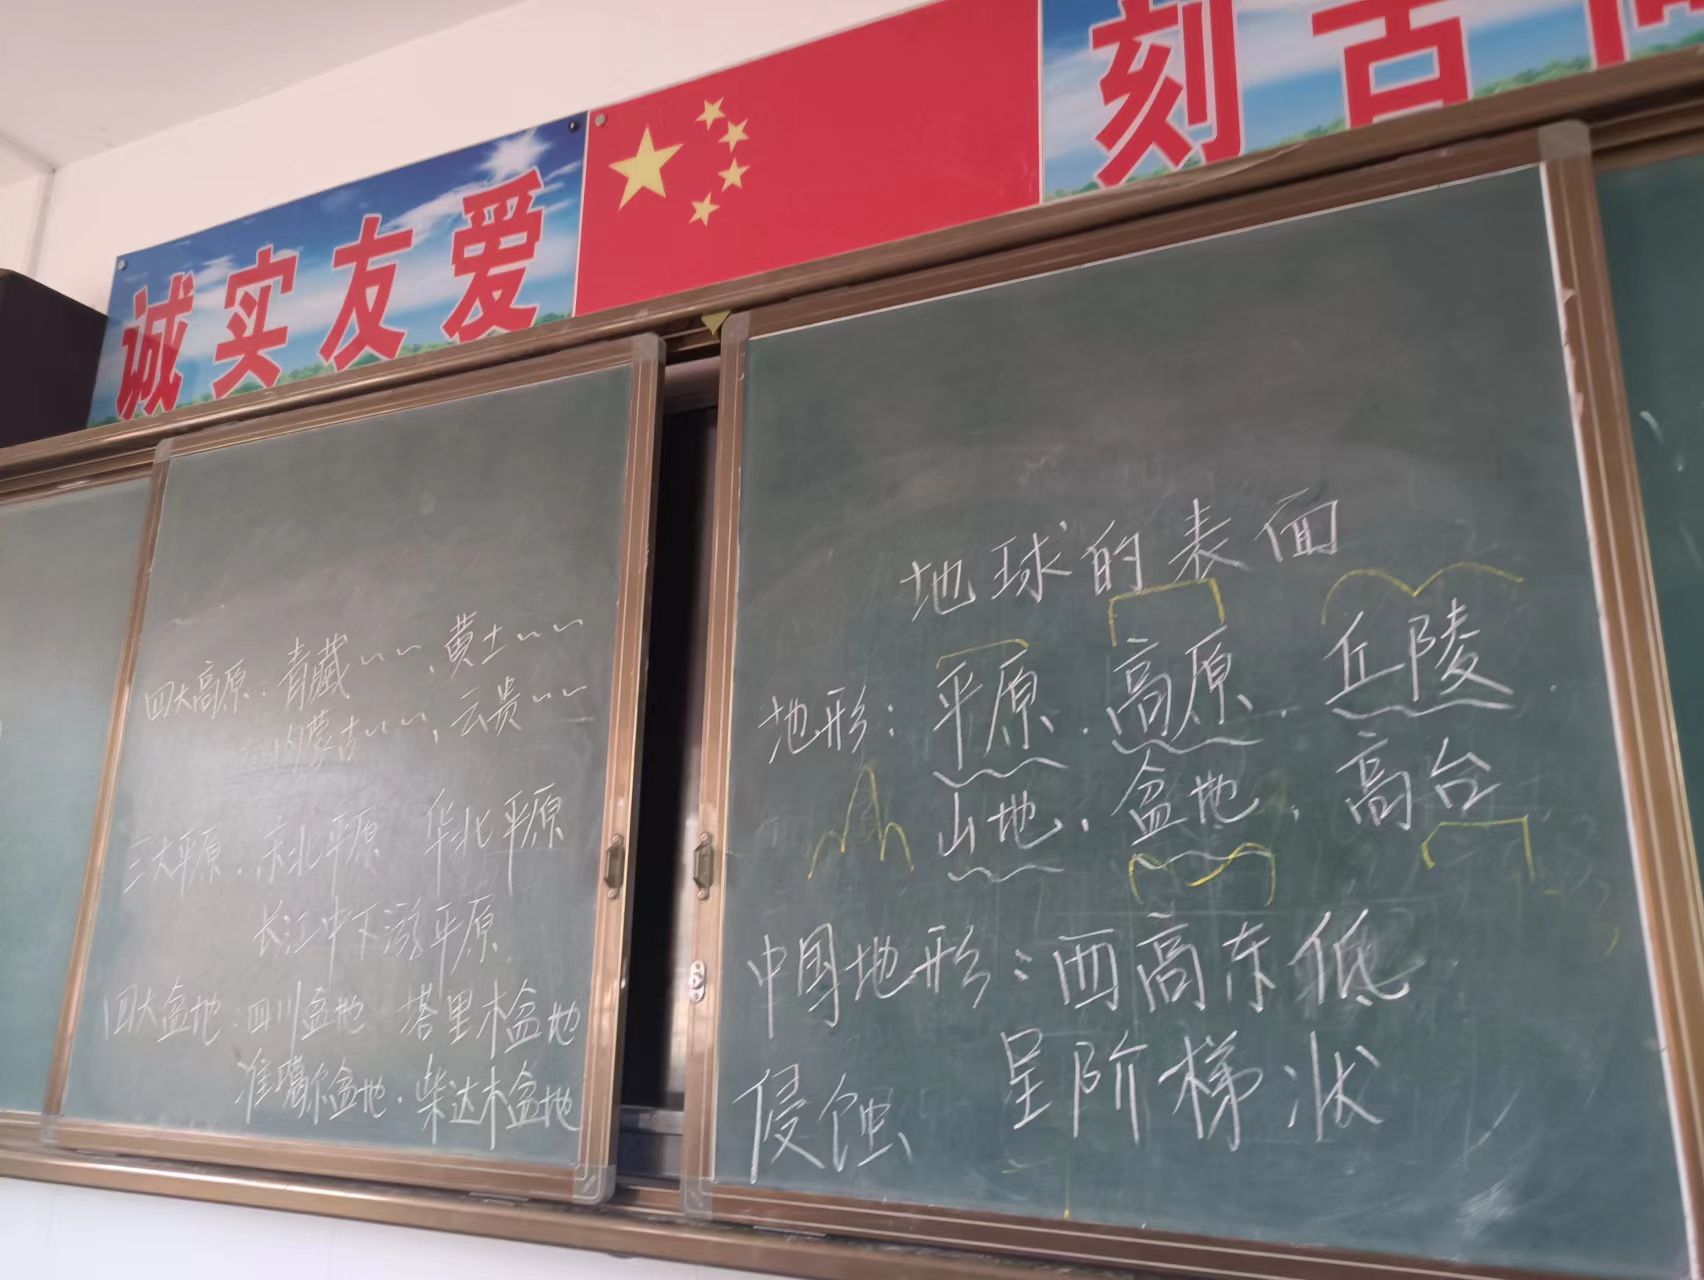 诚实友爱
刻苦
四大高原.青藏﹏﹏,黄土﹏﹏
内蒙古﹏﹏,云贵﹏﹏
三大平原..东北平原 华北平原
长江中下游平原.
四大盆地.四川盆地.塔里木盆地
准噶尔盆地.柴达木盆地
地球的表面
地形:平原.高原.丘陵
山地.盆地.高台
中国地形:西高东低
呈阶梯状
侵蚀